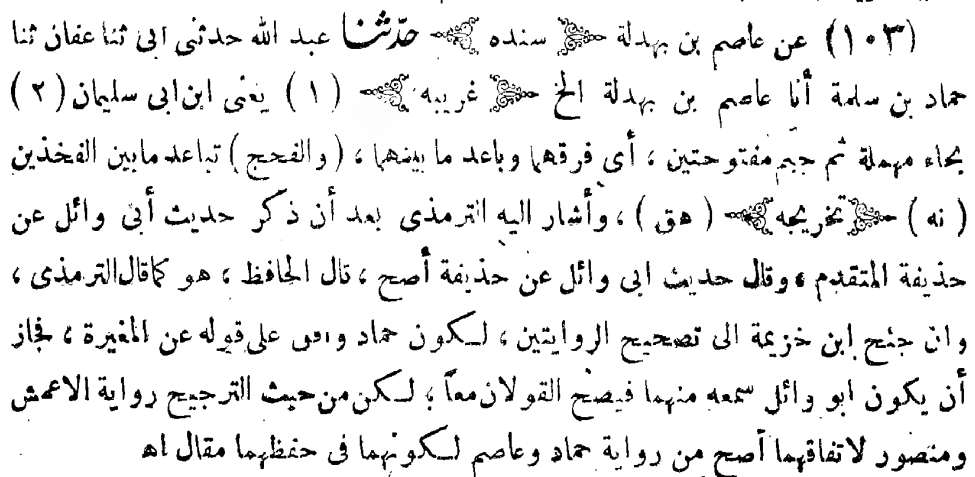 (١٠٣) عن عاصم بن بهدلة ﴿ سنده ﴾ حدّثنا عبد الله حدثنى ابى ثنا عفان ثنا
حماد بن سلمة أنا عاصم بن بهدلة الخ ﴿ غريبه ﴾ (١) يعنى ابن ابى سليمان (٢)
بحاء مهملة ثم جيم مفتوحتين ، أى فرقهما وباعد ما بينهما ، (والفحج) تباعد مابين الفخذين
(نه) ﴿ تخريجه ﴾ (هق) ، وأشار اليه الترمذى بعد أن ذكر حديث أبى وائل عن
حذيفة المتقدم ، وقال حديث ابى وائل عن حذيفة أصح ، قال الحافظ ، هو كماقال الترمذى ،
وان جنح ابن خزيمة الى تصحيح الروايتين ، لكون حماد وافق على قوله عن المغيرة ، فجاز
أن يكون ابو وائل سمعه منهما فيصح القولان معاً ؛ لكن من حيث الترجيح رواية الاعمش
ومنصور لاتفاقهما أصح من رواية حماد وعاصم لكونهما فى حفظهما مقال اه